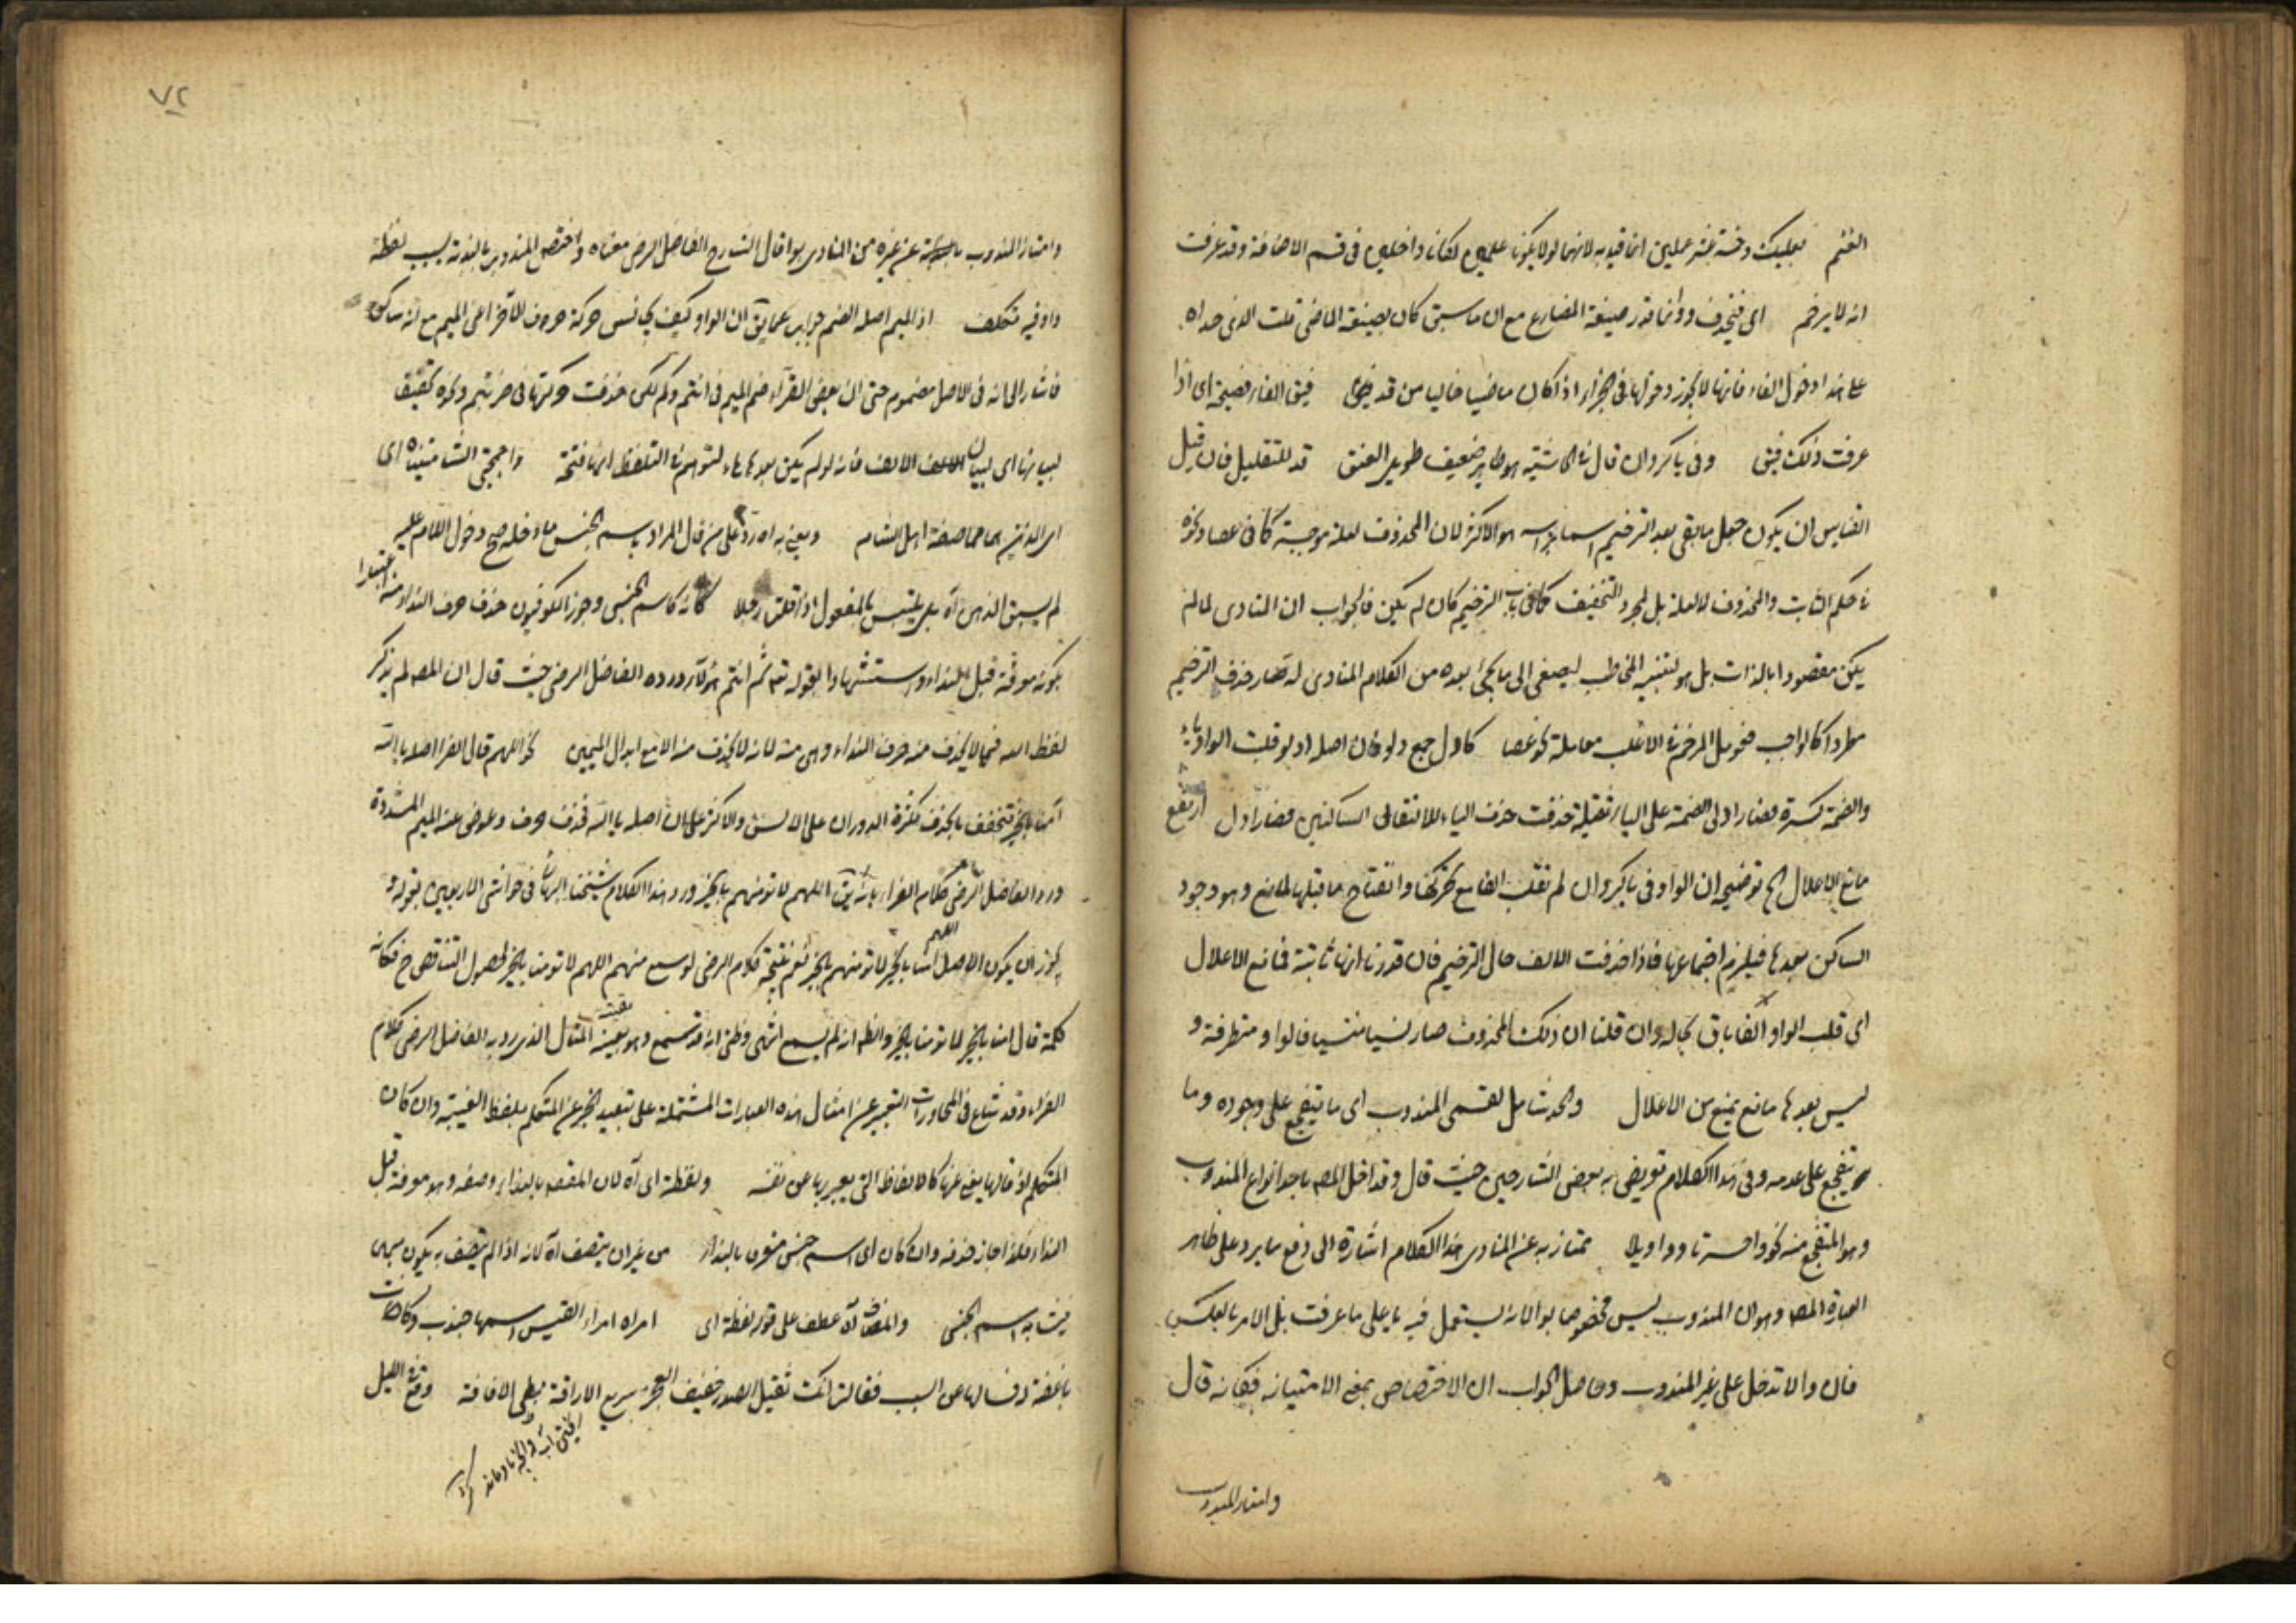 الغنم بعلبك وخمسة عشر علمين انما قيد به لانهما لو لا يكونا علمين لكانا داخلين في قسم الاضافة وقد عرفت
انه لا يرخم اى فيحذف وانما قدر صيغة المضارع مع ان ما سبق كان بصيغة الماضى قلت الذى حداه
على هذا دخول الفاء فانها لا يجوز دخولها في الجزاء اذا كان ماضيا خاليا من قد فيق الفاء فصيحة اى اذا
عرفت ذلك فيق وفى يا كروان قال في الحاشية هو طاير ضعيف طويل العنق قد للتقليل فان قيل
القياس ان يكون جعل ما بقى بعد الترخيم اسما براسه هو الاكثر لان المحذوف لعلة موجبة كما في عصا ونحوه
في حكم الثابت والمحذوف لا لعلة بل لمجرد التخفيف كما في باب الترخيم كان لم يكن فالجواب ان المنادى لما لم
يكن مقصودا بالذات بل هو لتنبيه المخاطب ليصغى الى ما يجئ بعده من الكلام المنادى له صار حذف الترخيم
مطردا كالواجب فعومل المرخم في الاغلب معاملة نحو عصا كادل جمع دلو فان اصله ادلو قلبت الواو ياء
والضمة كسرة فصار ادلى الضمة على الياء ثقيلة حذفت حذف الياء لالتقاء الساكنين فصار ادل ارتفع
مانع الاعلال الخ توضيحه ان الواو في يا كروان لم تقلب الفا مع تحركها وانفتاح ما قبلها لمانع وهو وجود
الساكن بعدها فيلزم اجتماعها فاذا حذفت الالف حال الترخيم فان قدرنا انها ثابتة فمانع الاعلال
اى قلب الواو الفا باق بحاله وان قلنا ان ذلك المحذوف صار نسيا منسيا فالواو متطرفة و
ليس بعدها مانع يمنع من الاعلال والحد شامل لقسمى المندوب اى ما يتفجع على وجوده وما
يتفجع على عدمه وفى هذا الكلام تعريض به بعض الشارحين حيث قال وقد اخل المصـ باحد انواع المندوب
وهو المتفجع منه نحو واحسرتا وواويلا ممتاز به عن المنادى هذا الكلام اشارة الى دفع ما يرد على ظاهر
عبارة المصـ وهو ان المندوب ليس مخصوصا بوا لانه يستعمل فيه يا على ما عرفت بل الامر بالعكس
فان وا لا تدخل على غير المندوب وحاصل الجواب ان الاختصاص بمعنى الامتياز فكانه قال
وامتاز المندوب
٧٢
وامتاز المندوب عن غيره من المنادى بوا قال الشارح الفاضل الرضى معناه واختص المندوب بالندبة بسبب لفظة
وا وفيه تكلف اذ الميم اصله الضم جواب عما يق ان الواو كيف يجانس حركة حروف الآخر اعنى الميم مع انه ساكن
فاشار الى انه في الاصل مضموم حتى ان بعض القراء ضم الميم في انتم وكم لكن حذفت حركتها في ضربتم ونحوه تخفيفا
لبيانها اى لبيان الالف فانه لو لم يكن بعدها هاء لتوهم في التلفظ انها فتحة واجمجمتى الشاميتيناه اى
اى اللذين هما صفة اهل الشام ويعنى به رد على من قال المراد باسم الجنس ما دخله صح دخول اللام عليه
لم يسبق الذهن اه بل يلتبس بالمفعول اذا قلت رجلا كانه كاسم الجنس وجوز الكوفيون حذف حرف النداء منه اعتبارا
بكونه معرفة قبل النداء واستشهادا بقوله تع ثم انتم هؤلاء ورده الفاضل الرضى حيث قال ان المصـ لم يذكر
لفظ الله فيما لا يحذف منه حرف النداء وهى منه لانه لا يحذف منه الا مع ابدال الميمين نحو اللهم قال الفراء اصله يا الله
امنا بالخير فخفف بالحذف لكثرة الدوران على الالسن والاكثر على ان اصله يا الله فحذف حرف وعوض عنه الميم المشددة
ورد الفاضل الرضى كلام الفراء بانه يق اللهم لا تؤمهم بالخير ورد هذا الكلام شيخنا البهائى في حواشى الاربعين بقوله و
يجوز ان يكون الاصل امنا بالخير لا تؤمهم بالخير نعم نتيجة كلام الرضى لو سمع منهم اللهم لا تؤمنا بالخير لحصول التناقض ح فكانه
كلمة قال امنا بالخير لا تؤمنا بالخير والظ انه لم يسمع انتهى وظنى انه قد سمع وهو بعينه المثال الذى رد به الفاضل الرضى كلام
الفراء وقد شاع في المحاورات التعبير عن امثال هذه العبارات المشتملة على تبعيد الخير عن المتكلم بلفظ الغيبة وان كان
المتكلم اذ قالها يعنى عنها كالالفاظ التى يعبر بها عن نفسه ولفظة اى اه لان المقصـ بالنداء وصفه وهو معرفة قبل
النداء فلذا جاز حذفه وان كان اى اسم جنس متعرف بالنداء من غير ان يتصف اه لانه اذا لم يتصف به يكون مبهما
فيشابه اسم الجنس والمضاف اه عطف على قوله لفظة اى امراه امراء القيس اسمها جندب وكانت
باغضة له فسالها عن السبب فقالت انك ثقيل الصدر خفيف العجز سريع الاراقة بطى الافاقة وقع الليل